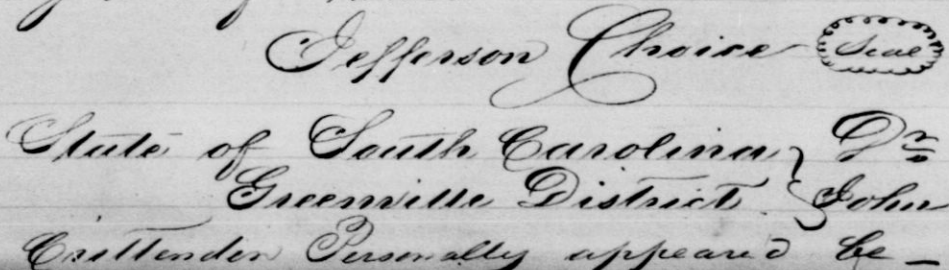 Jefferson Choice Seal
State of South Carolina } Dr
Greenville District } John
Crittenden Personally appeared be-